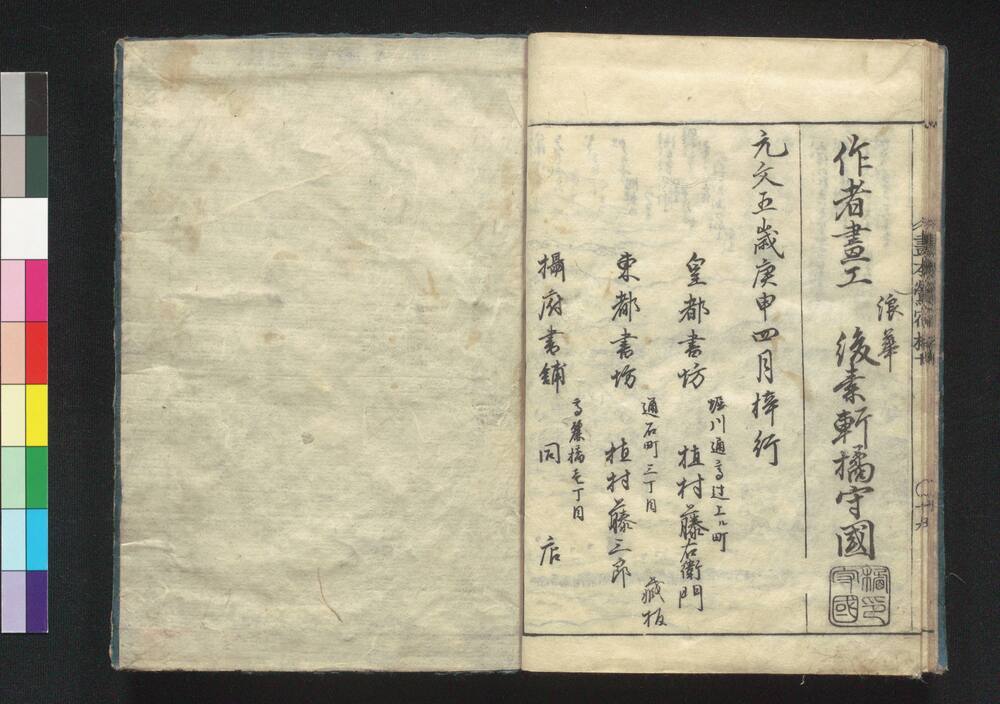 作者畫工
浪華
後素軒橘守國
橘氏
守國
元文五歳庚申四月梓行
皇都書坊
堀川通高辻上ル町
植村藤右衛門
東都書坊
通石町三丁目
植村藤三郎
藏板
攝府書鋪
高麗橋壱丁目
同店